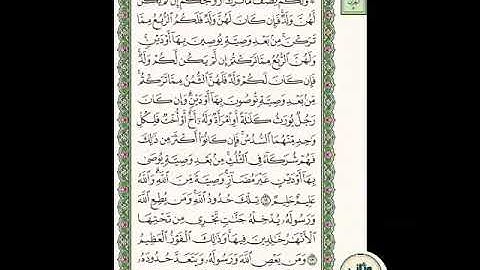 وَلَكُمْ نِصْفُ مَا تَرَكَ أَزْوَٰجُكُمْ إِن لَّمْ يَكُن
لَّهُنَّ وَلَدٌ فَإِن كَانَ لَهُنَّ وَلَدٌ فَلَكُمُ ٱلرُّبُعُ مِمَّا
تَرَكْنَ مِنۢ بَعْدِ وَصِيَّةٍ يُوصِينَ بِهَآ أَوْ دَيْنٍ
وَلَهُنَّ ٱلرُّبُعُ مِمَّا تَرَكْتُمْ إِن لَّمْ يَكُن لَّكُمْ وَلَدٌ
فَإِن كَانَ لَكُمْ وَلَدٌ فَلَهُنَّ ٱلثُّمُنُ مِمَّا تَرَكْتُم
مِّنۢ بَعْدِ وَصِيَّةٍ تُوصُونَ بِهَآ أَوْ دَيْنٍ وَإِن كَانَ
رَجُلٌ يُورَثُ كَلَٰلَةً أَوِ ٱمْرَأَةٌ وَلَهُۥٓ أَخٌ أَوْ أُخْتٌ فَلِكُلِّ
وَٰحِدٍ مِّنْهُمَا ٱلسُّدُسُ فَإِن كَانُوٓا۟ أَكْثَرَ مِن ذَٰلِكَ
فَهُمْ شُرَكَآءُ فِى ٱلثُّلُثِ مِنۢ بَعْدِ وَصِيَّةٍ يُوصَىٰ
بِهَآ أَوْ دَيْنٍ غَيْرَ مُضَآرٍّ وَصِيَّةً مِّنَ ٱللَّهِ وَٱللَّهُ
عَلِيمٌ حَلِيمٌ تِلْكَ حُدُودُ ٱللَّهِ وَمَن يُطِعِ ٱللَّهَ
وَرَسُولَهُۥ يُدْخِلْهُ جَنَّٰتٍ تَجْرِى مِن تَحْتِهَا
ٱلْأَنْهَٰرُ خَٰلِدِينَ فِيهَا وَذَٰلِكَ ٱلْفَوْزُ ٱلْعَظِيمُ
وَمَن يَعْصِ ٱللَّهَ وَرَسُولَهُۥ وَيَتَعَدَّ حُدُودَهُۥ